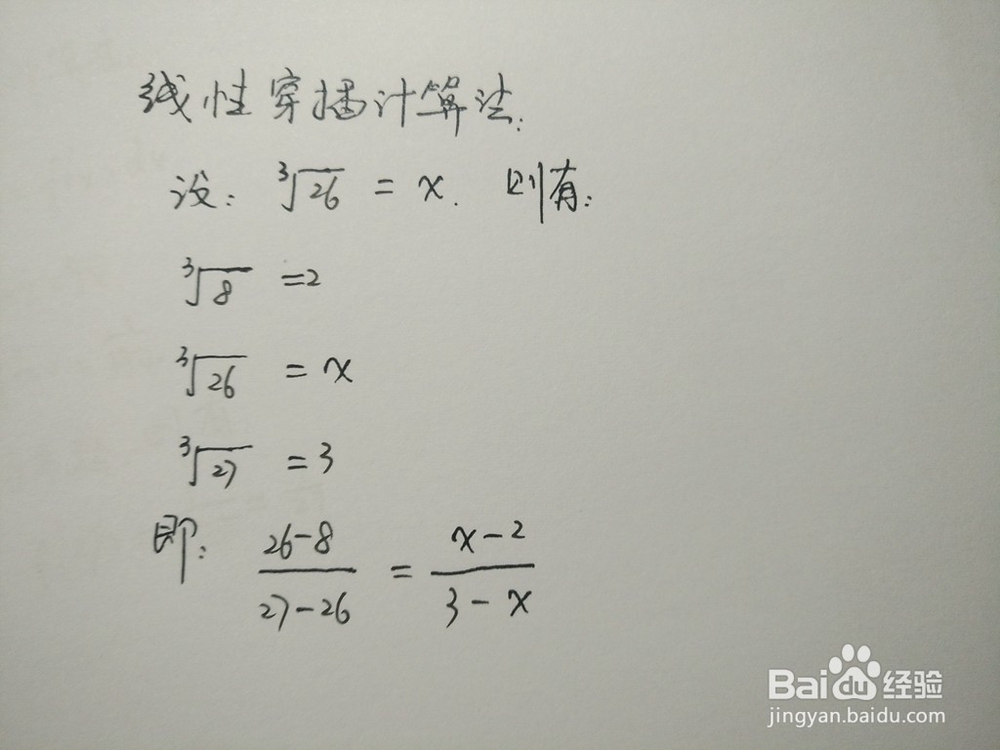 线性穿插计算法:
设: ³√26 = x. 则有:
³√8 =2
³√26 = x
³√27 =3
即: (26-8)/(27-26) = (x-2)/(3-x)
Baidu经验
jingyan.baidu.com